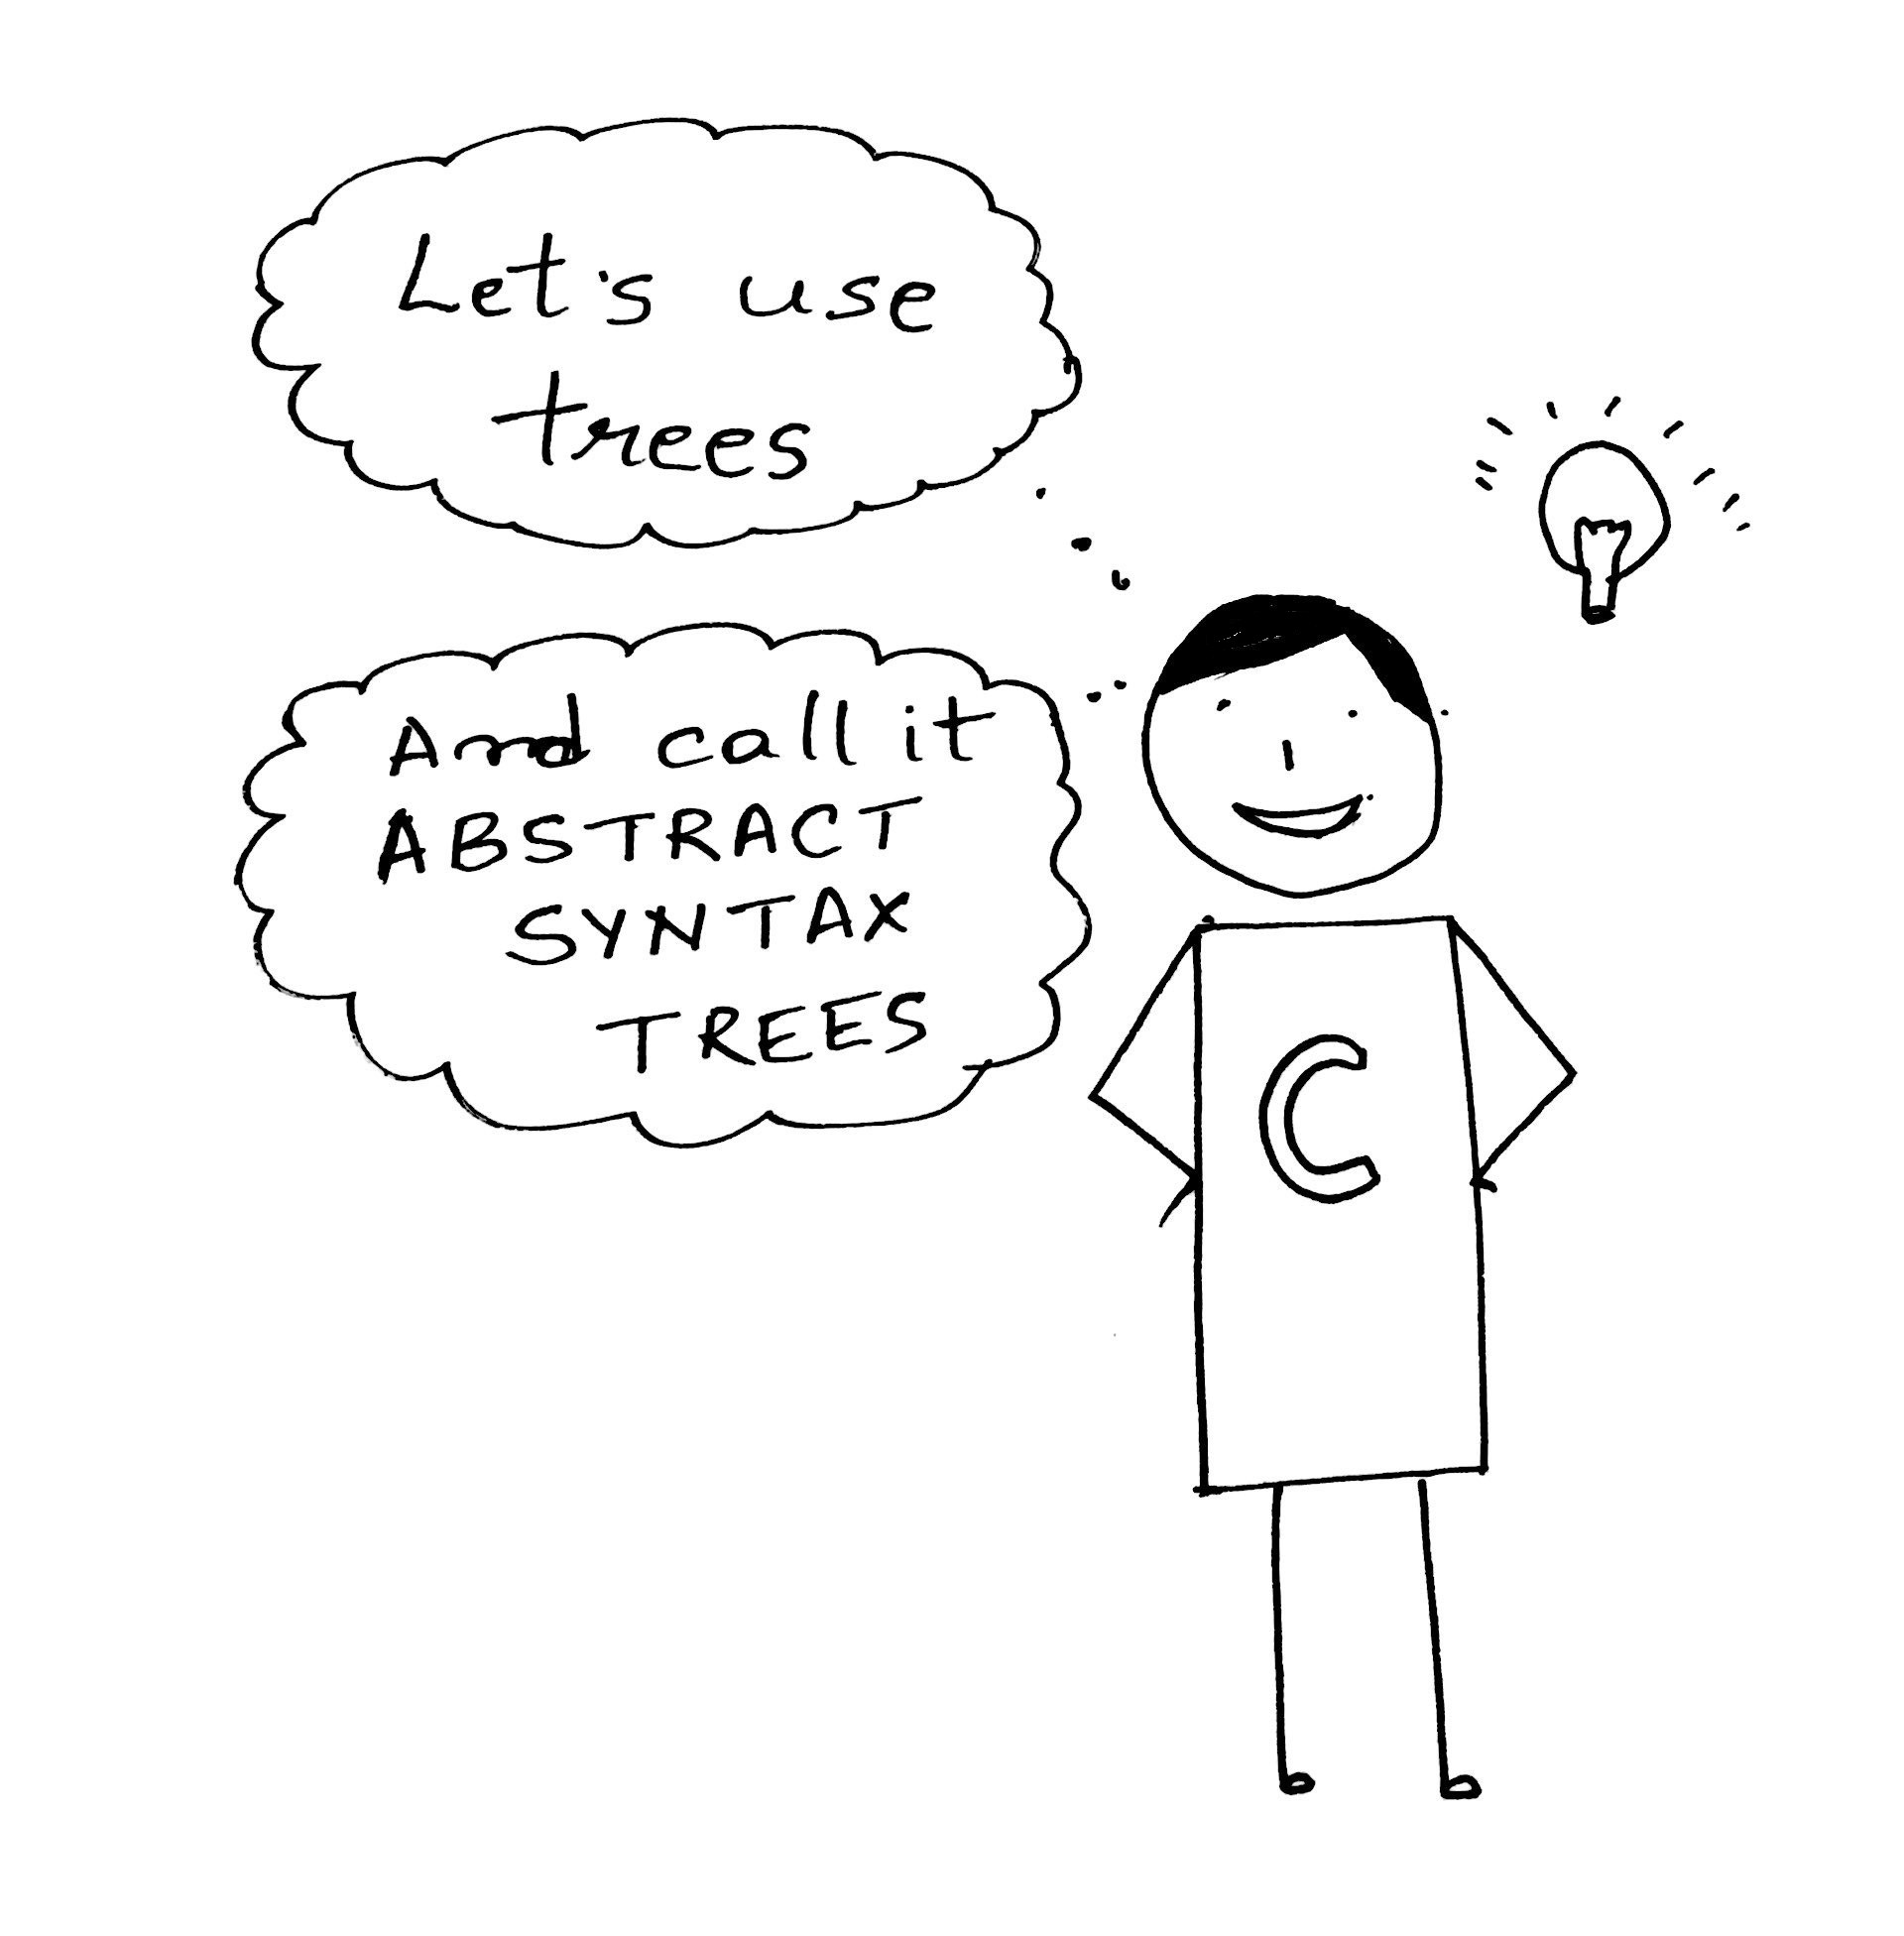 Let's use
trees
And call it
ABSTRACT
SYNTAX
TREES
C